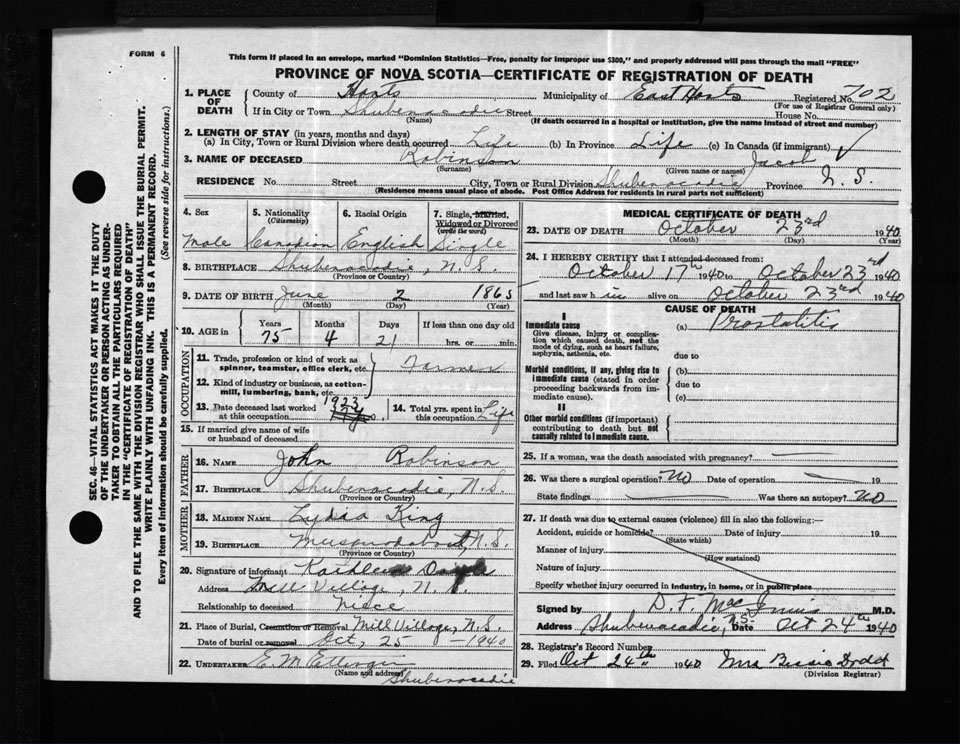 FORM 6
This form if placed in an envelope, marked "Dominion Statistics—Free, penalty for improper use $300," and properly addressed will pass through the mail "FREE"
PROVINCE OF NOVA SCOTIA—CERTIFICATE OF REGISTRATION OF DEATH
1. PLACE OF DEATH County of Hants Municipality of East Hants Registered No. 702
(For use of Registrar General only)
If in City or Town Shubenacadie Street House No.
(Name) (If death occurred in a hospital or institution, give the name instead of street and number)
2. LENGTH OF STAY (in years, months and days)
(a) In City, Town or Rural Division where death occurred Life (b) In Province Life (c) In Canada (if immigrant) ✓
3. NAME OF DECEASED Robinson Jacob
(Surname) (Given name or names)
RESIDENCE No. Street City, Town or Rural Division Shubenacadie Province N. S.
(Residence means usual place of abode. Post Office Address for residents in rural parts not sufficient)
4. Sex 5. Nationality (Citizenship) 6. Racial Origin 7. Single, Married, Widowed or Divorced (write the word)
Male Canadian English Single
8. BIRTHPLACE Shubenacadie, N.S.
(Province or Country)
9. DATE OF BIRTH June 2 1865
(Month) (Day) (Year)
10. AGE in Years Months Days If less than one day old
75 4 21 hrs. or min.
OCCUPATION
11. Trade, profession or kind of work as spinner, teamster, office clerk, etc. Farmer
12. Kind of industry or business, as cotton-mill, lumbering, bank, etc.
13. Date deceased last worked at this occupation 1923 14. Total yrs. spent in this occupation Life
15. If married give name of wife or husband of deceased
FATHER
16. NAME John Robinson
17. BIRTHPLACE Shubenacadie, N.S.
(Province or Country)
MOTHER
18. MAIDEN NAME Lydia King
19. BIRTHPLACE Musquodoboit, N.S.
(Province or Country)
20. Signature of informant Kathleen Doyle
Address Mill Village, N.S.
Relationship to deceased niece
21. Place of Burial, Cremation or Removal Mill Village, N.S.
Date of burial or removal Oct, 25 — 1940
22. UNDERTAKER E. M. Ettinger
(Name and address) Shubenacadie
MEDICAL CERTIFICATE OF DEATH
23. DATE OF DEATH October 23rd 1940
(Month) (Day) (Year)
24. I HEREBY CERTIFY that I attended deceased from:
October 17th 1940 to October 23rd 1940
and last saw h im alive on October 23rd 1940
CAUSE OF DEATH
I
Immediate cause (a) Prostatitis
Give disease, injury or complication which caused death, not the mode of dying, such as heart failure, asphyxia, asthenia, etc.
due to
Morbid conditions, if any, giving rise to immediate cause (stated in order proceeding backwards from immediate cause).
(b)
due to
(c)
II
Other morbid conditions (if important) contributing to death but not causally related to immediate cause.
25. If a woman, was the death associated with pregnancy?
26. Was there a surgical operation? No Date of operation 19
State findings Was there an autopsy? No
27. If death was due to external causes (violence) fill in also the following:—
Accident, suicide or homicide? Date of injury 19
(State which)
Manner of injury
(How sustained)
Nature of injury
Specify whether injury occurred in industry, in home, or in public place
Signed by D. F. MacInnis M.D.
Address Shubenacadie, N.S. Date Oct 24th 1940
28. Registrar's Record Number
29. Filed Oct 24th 1940 Mrs Bessie Dodd
(Division Registrar)
SEC. 46—VITAL STATISTICS ACT MAKES IT THE DUTY
OF THE UNDERTAKER OR PERSON ACTING AS UNDER-
TAKER TO OBTAIN ALL THE PARTICULARS REQUIRED
IN THE "CERTIFICATE OF REGISTRATION OF DEATH"
AND TO FILE THE SAME WITH THE DIVISION REGISTRAR WHO SHALL ISSUE THE BURIAL PERMIT.
WRITE PLAINLY WITH UNFADING INK. THIS IS A PERMANENT RECORD.
Every item of information should be carefully supplied. (See reverse side for instructions.)